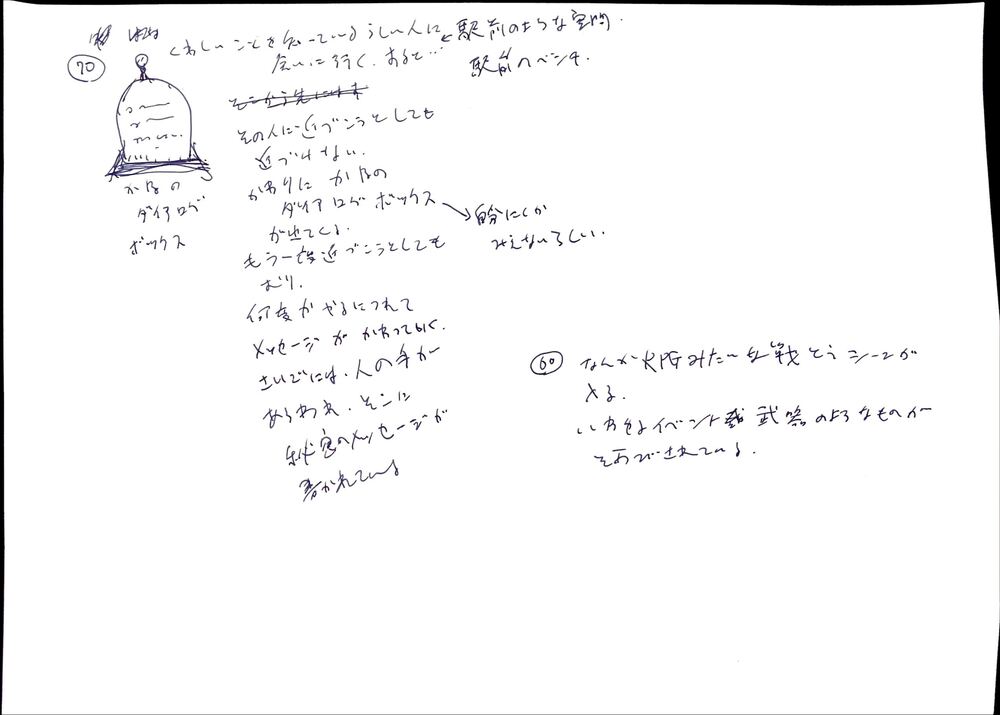 70
くわしいことを知っているらしい人に
会いに行く。あると…
←駅前のような空間.
駅前のベンチ.
その人に近づこうとしても
近づけない.
かわりに かねの
ダイアログボックス
が出てくる.
→自分にしか
みえないらしい.
もう一度近づこうとしても
むり.
何度かやるにつれて
メッセージが かわっていく.
さいごには、人の手が
あらわれ、そこに
秘密のメッセージが
書かれている
かねの
ダイアログ
ボックス
60
なんかRPGみたいな戦とうシーンが
入る.
いわゆるイベント 武器のようなものが
そうびされている.